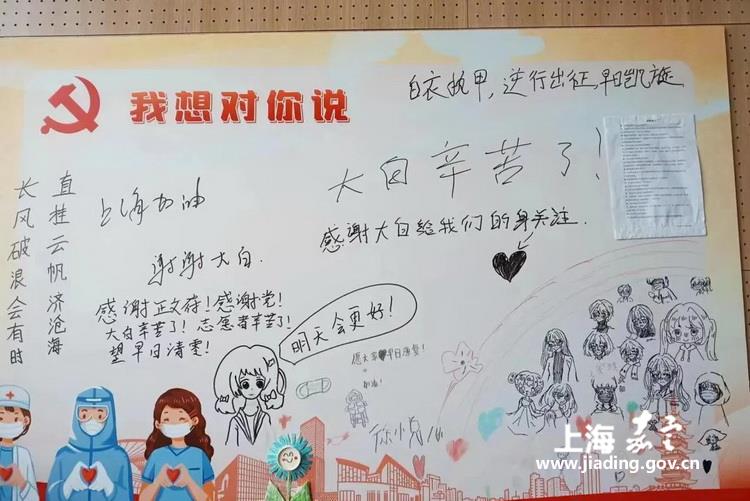 我想对你说
白衣执甲,逆行出征,早日凯旋
大白辛苦了!
感谢大白给我们的身关注.
直挂云帆济沧海
长风破浪会有时
上海加油
谢谢大白.
感谢政府!感谢党!
大白辛苦了!志愿者辛苦了!
望早日清零!
明天会更好!
愿大家♥早日康复!
加油!
上海嘉定
www.jiading.gov.cn